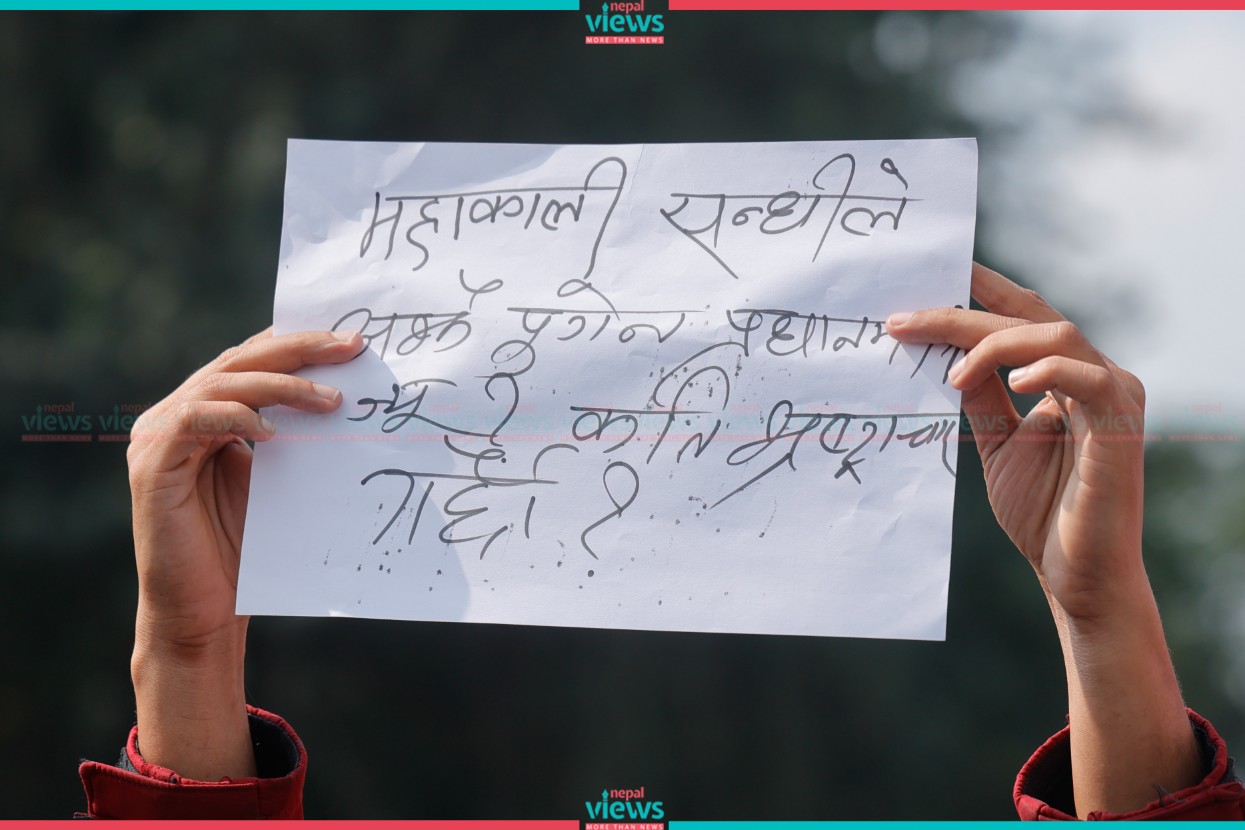 nepal
views
MORE THAN NEWS
महाकाली सन्धीले
अझै पुगेन प्रधानमन्त्री
ज्यू ? कति भ्रष्ट्राचार
गर्छौ ?
nepal
views
MORE THAN NEWS